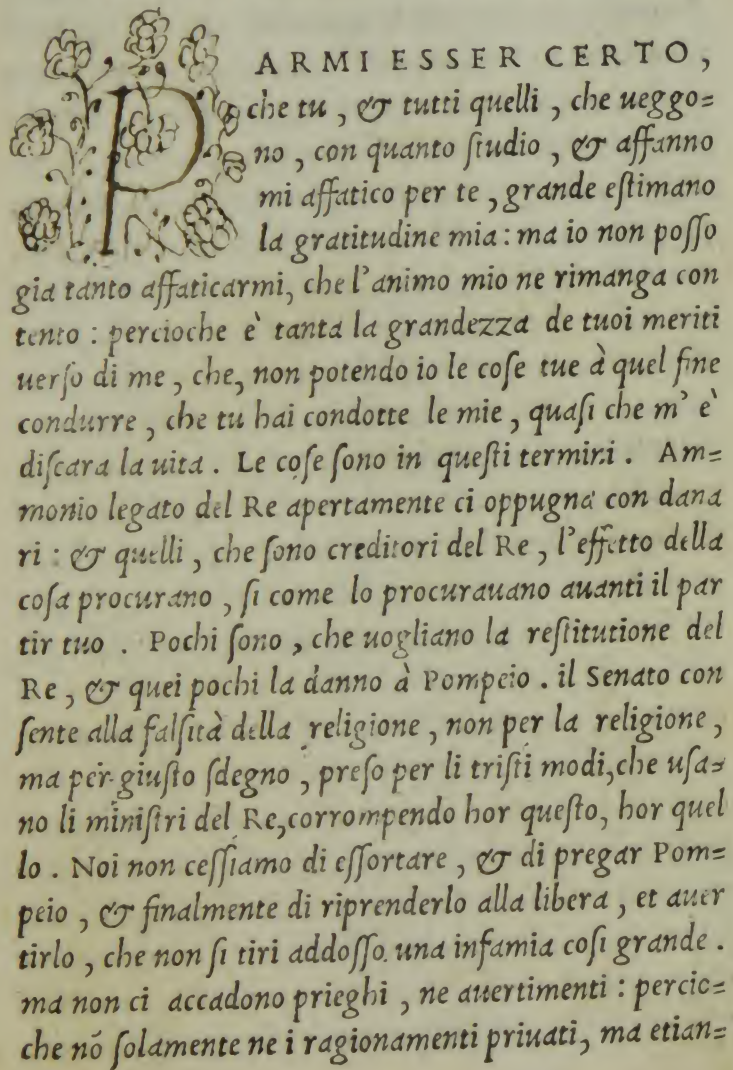 PARMI ESSER CERTO,
che tu, & tutti quelli, che ueggo=
no, con quanto ſtudio, & affanno
mi affatico per te, grande eſtimano
la gratitudine mia: ma io non poſſo
gia tanto affaticarmi, che l'animo mio ne rimanga con
tento: percioche è tanta la grandezza de tuoi meriti
uerſo di me, che, non potendo io le coſe tue à quel fine
condurre, che tu hai condotte le mie, quaſi che m'è
diſcara la uita. Le coſe ſono in queſti termini. Am=
monio legato del Re apertamente ci oppugna con dana
ri: & quelli, che ſono creditori del Re, l'effetto della
coſa procurano, ſi come lo procurauano auanti il par
tir tuo. Pochi ſono, che uogliano la reſtitutione del
Re, & quei pochi la danno à Pompeio. il Senato con
ſente alla falſità della religione, non per la religione,
ma per giuſto ſdegno, preſo per li triſti modi, che uſa=
no li miniſtri del Re, corrompendo hor queſto, hor quel
lo. Noi non ceſſiamo di eſſortare, & di pregar Pom=
peio, & finalmente di riprenderlo alla libera, et auer
tirlo, che non ſi tiri addoſſo una infamia coſi grande.
ma non ci accadono prieghi, ne auertimenti: percio=
che nõ ſolamente ne i ragionamenti priuati, ma etian=